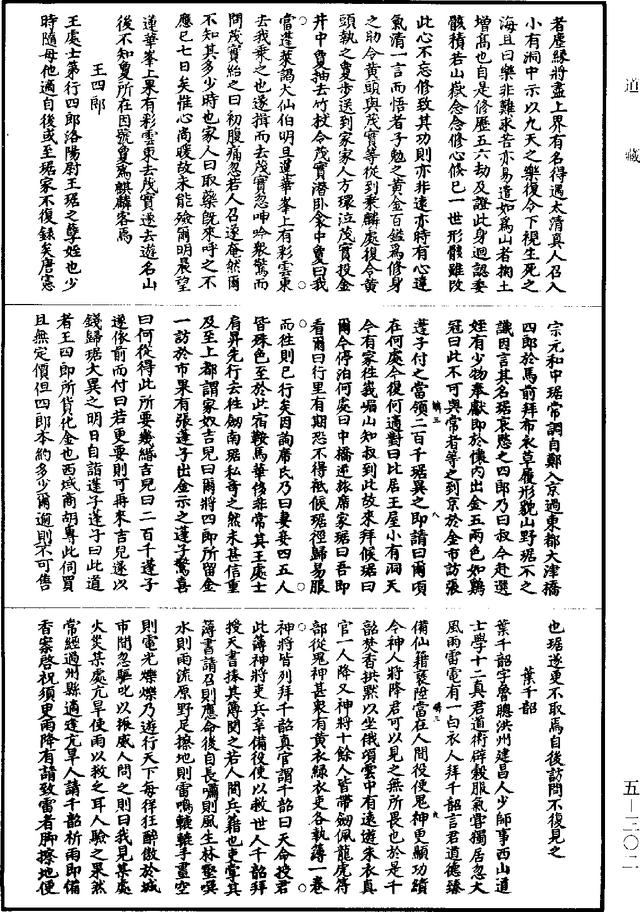 道藏
者塵緣將盡上界有名得遇太清真人召入
小有洞中示以九天之樂復令下視生死之
海且曰樂非難求苦亦易遣如爲山者掬土
增高也自是修歷五六劫及證此身迴認委
骸積若山嶽念念修心修已一世形骸雖改
此心不忘修致其功則亦非遠亦時有心達
氣清一言而悟者子勉之黃金百鎰爲修身
之助令黃頭與茂實等從到乘麟處復令黃
頭執之夐步送到家家人方環泣茂實投金
井中夐抽去竹杖令茂實潛卧衾中夐曰我
當蓬萊謁大仙伯明旦蓮華峯上有彩雲東
去我乘之也遂揖而去茂實忽呻吟衆驚而
問茂實紿之曰初腹痛忽若人召遂奄然爾
不知其多少時也家人曰取藥旣來呼之不
應已七日矣惟心尚暖故未能殮爾明晨望
蓮華峯上果有彩雲東去茂實遂去遊名山
後不知夐所在因號夐爲麒麟客焉
王四郎
王處士第行四郎洛陽尉王琚之孽姪也少
時隨母他適自後或至琚家不復録矣唐憲
宗元和中琚常調自鄭入京過東都大津橋
四郎於馬前拜布衣草履形貌山野琚不之
識因言其名琚哀愍之四郎乃曰叔今赴選
姪有少物奉獻即於懷內出金五兩色如鷄
冠曰此不可與常者等之到京於金市訪張
蓬子付之當領二百千琚異之即請曰爾頃
在何處今復何適對曰比居王屋小有洞天
今有家往峩嵋山知叔到此故來拜候琚曰
爾今停泊何處曰中橋逆旅席家琚曰吾即
看爾曰行里有期恐不得祗候琚徑歸易服
而往則已行矣因詢席氏乃曰妻妾四五人
皆殊色至於此宿鞍馬華侈非常其王處士
肩昇先行去往劍南琚私奇之然未甚信重
及至上都謂家奴吉兒曰爾將四郎所留金
一訪於市果有張蓬子出金示之蓬子驚喜
曰何從得此所要幾緡吉兒曰二百千蓬子
遂依前而付曰若更要則可再來吉兒遂以
錢歸琚大異之明日自詣蓬子蓬子曰此道
者王四郎所貨化金也西域商胡專此伺買
且無定價但四郎本約多少爾逾則不可售
也琚遂更不取焉自後訪問不復見之
葉千韶
葉千韶字魯聰洪州建昌人少師事西山道
士學十二真君道術辟穀服氣嘗獨居忽大
風雨雷電有一白衣人拜千韶言君道德臻
備仙籍褒陞當在人間役使鬼神更顯功績
今神人將降君可以見之無所畏也於是千
韶焚香拱默以坐俄頃雲中有遠遊朱衣真
官一人降又神將十餘人皆帶劍佩龍虎符
部從鬼神甚衆有黃衣緑衣吏各執簿一卷
神將皆列拜千韶真官謂千韶曰天命授君
此簿神將吏兵幸備役使以救世人千韶拜
授天書捧其簿閱之若人間兵籍也吏掌其
簿書請召則應命後自長嘯則風生林壑噀
水則雨流原野足擦地則雷鳴轆轆手畫空
則電光爍爍乃遊行天下每徉狂醉傲於城
市間忽驅叱以振威人問之則曰我見某處
火災某處亢旱使雨以救之耳人驗之果然
常經過州縣適逢亢旱人請千韶祈雨即備
香案啓祝須更雨降有請致雷者脚擦地便
五—三〇二